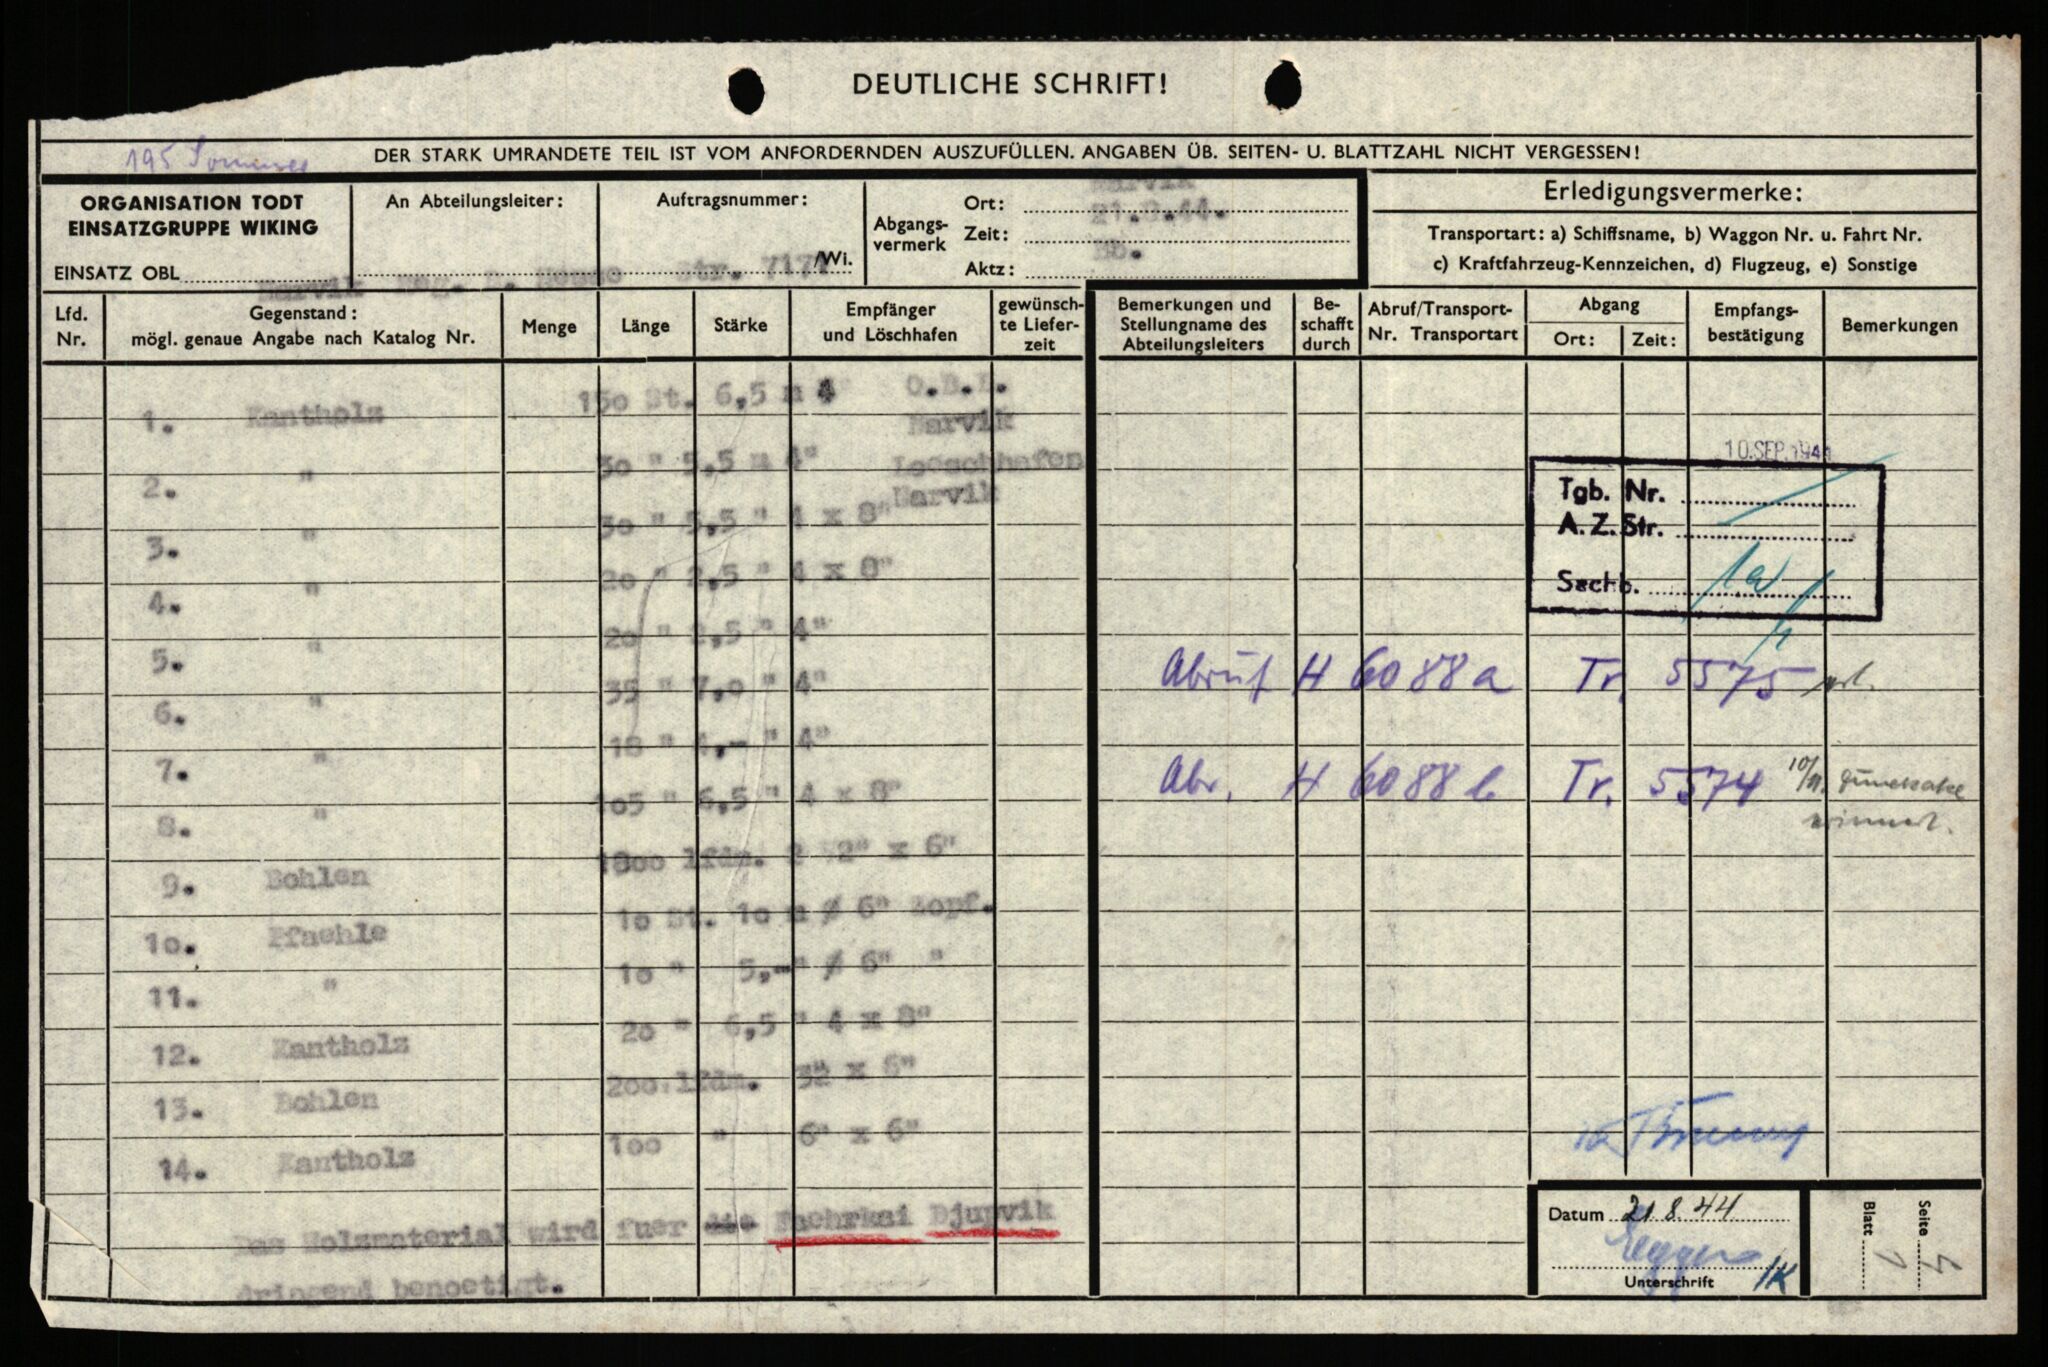 DEUTLICHE SCHRIFT!
195
DER STARK UMRANDETE TEIL IST VOM ANFORDERNDEN AUSZUFÜLLEN. ANGABEN ÜB. SEITEN- U. BLATTZAHL NICHT VERGESSEN!
ORGANISATION TODT
EINSATZGRUPPE WIKING
EINSATZ OBL
Narvik
An Abteilungsleiter:
Auftragsnummer:
Str. 7171
/Wi.
Abgangs-
vermerk
Ort: Narvik
Zeit: 21.8.44.
Aktz: Bb.
Erledigungsvermerke:
Transportart: a) Schiffsname, b) Waggon Nr. u. Fahrt Nr.
c) Kraftfahrzeug-Kennzeichen, d) Flugzeug, e) Sonstige
Lfd.
Nr.
Gegenstand:
mögl. genaue Angabe nach Katalog Nr.
Menge
Länge
Stärke
Empfänger
und Löschhafen
gewünsch-
te Liefer-
zeit
Bemerkungen und
Stellungname des
Abteilungsleiters
Be-
schafft
durch
Abruf/Transport-
Nr. Transportart
Abgang
Ort:
Zeit:
Empfangs-
bestätigung
Bemerkungen
1. Kantholz 150 St. 6,5 m 4" O.B.L.
Narvik
2. " 30 " 5,5 m 4" Loeschhafen
Narvik
3. " 30 " 5,5 " 4 x 8"
4. " 20 " 2,5 " 4 x 8"
5. " 20 " 2,5 " 4"
6. " 35 " 7,0 " 4"
7. " 18 " 4,- " 4"
8. " 105 " 6,5 " 4 x 8"
9. Bohlen 1800 lfdm. 2 1/2" x 6"
10. Pfaehle 10 St. 10 m Ø 6" Zopf.
11. " 10 " 5,-" Ø 6" "
12. Kantholz 20 " 6,5 " 4 x 8"
13. Bohlen 200 lfdm. x 6"
14. Kantholz 100 " 6" x 6"
Das Holzmaterial wird fuer die Faehrkai Djupvik
dringend benoetigt.
10. SEP. 1944
Tgb. Nr.
A. Z. Str.
Sachb.
Abruf H 6088a Tr. 5575 erl.
Abr. H 6088b Tr. 5574 10/11.
Datum 21.8.44
Unterschrift
Seite
Blatt 1